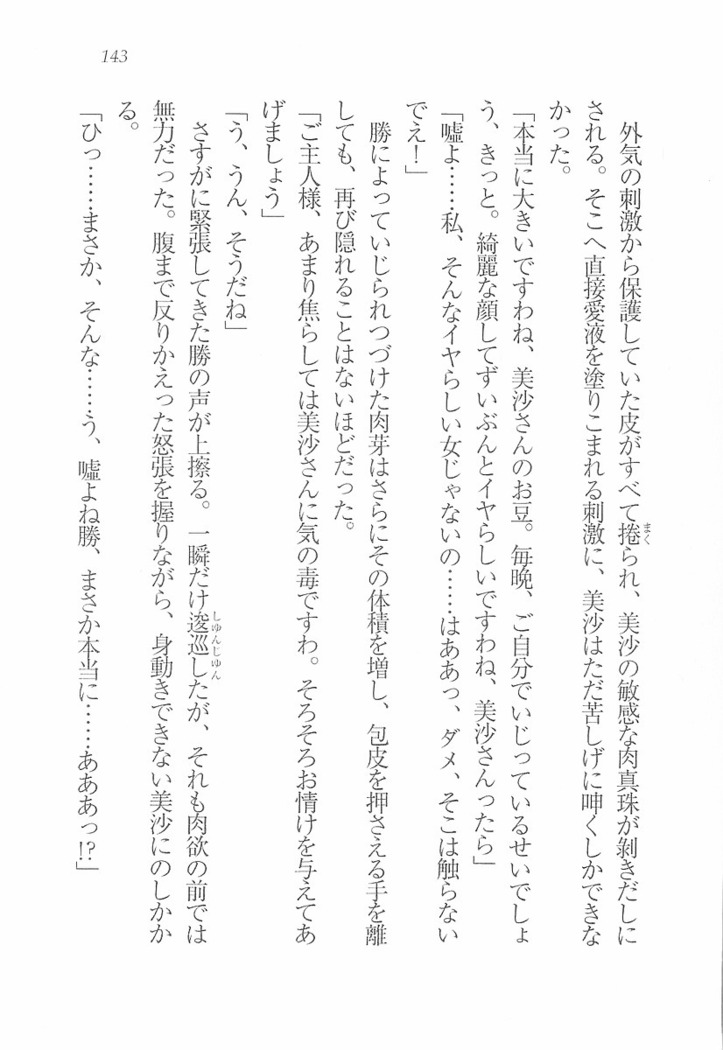 143
外気の刺激から保護していた皮がすべて捲られ、美沙の敏感な肉真珠が剝きだしに
される。そこへ直接愛液を塗りこまれる刺激に、美沙はただ苦しげに呻くしかできな
かった。
「本当に大きいですわね、美沙さんのお豆。毎晩、ご自分でいじっているせいでしょ
う、きっと。綺麗な顔してずいぶんとイヤらしいですわね、美沙さんったら」
「嘘よ……私、そんなイヤらしい女じゃないの……はああっ、ダメ、そこは触らない
でえ！」
勝によっていじられつづけた肉芽はさらにその体積を増し、包皮を押さえる手を離
しても、再び隠れることはないほどだった。
「ご主人様、あまり焦らしては美沙さんに気の毒ですわ。そろそろお情けを与えてあ
げましょう」
「う、うん、そうだね」
さすがに緊張してきた勝の声が上擦る。一瞬だけ逡巡したが、それも肉欲の前では
無力だった。腹まで反りかえった怒張を握りながら、身動きできない美沙にのしかか
る。
「ひっ……まさか、そんな……う、嘘よね勝、まさか本当に……あああっ!?」
まく
しゆんじゆん